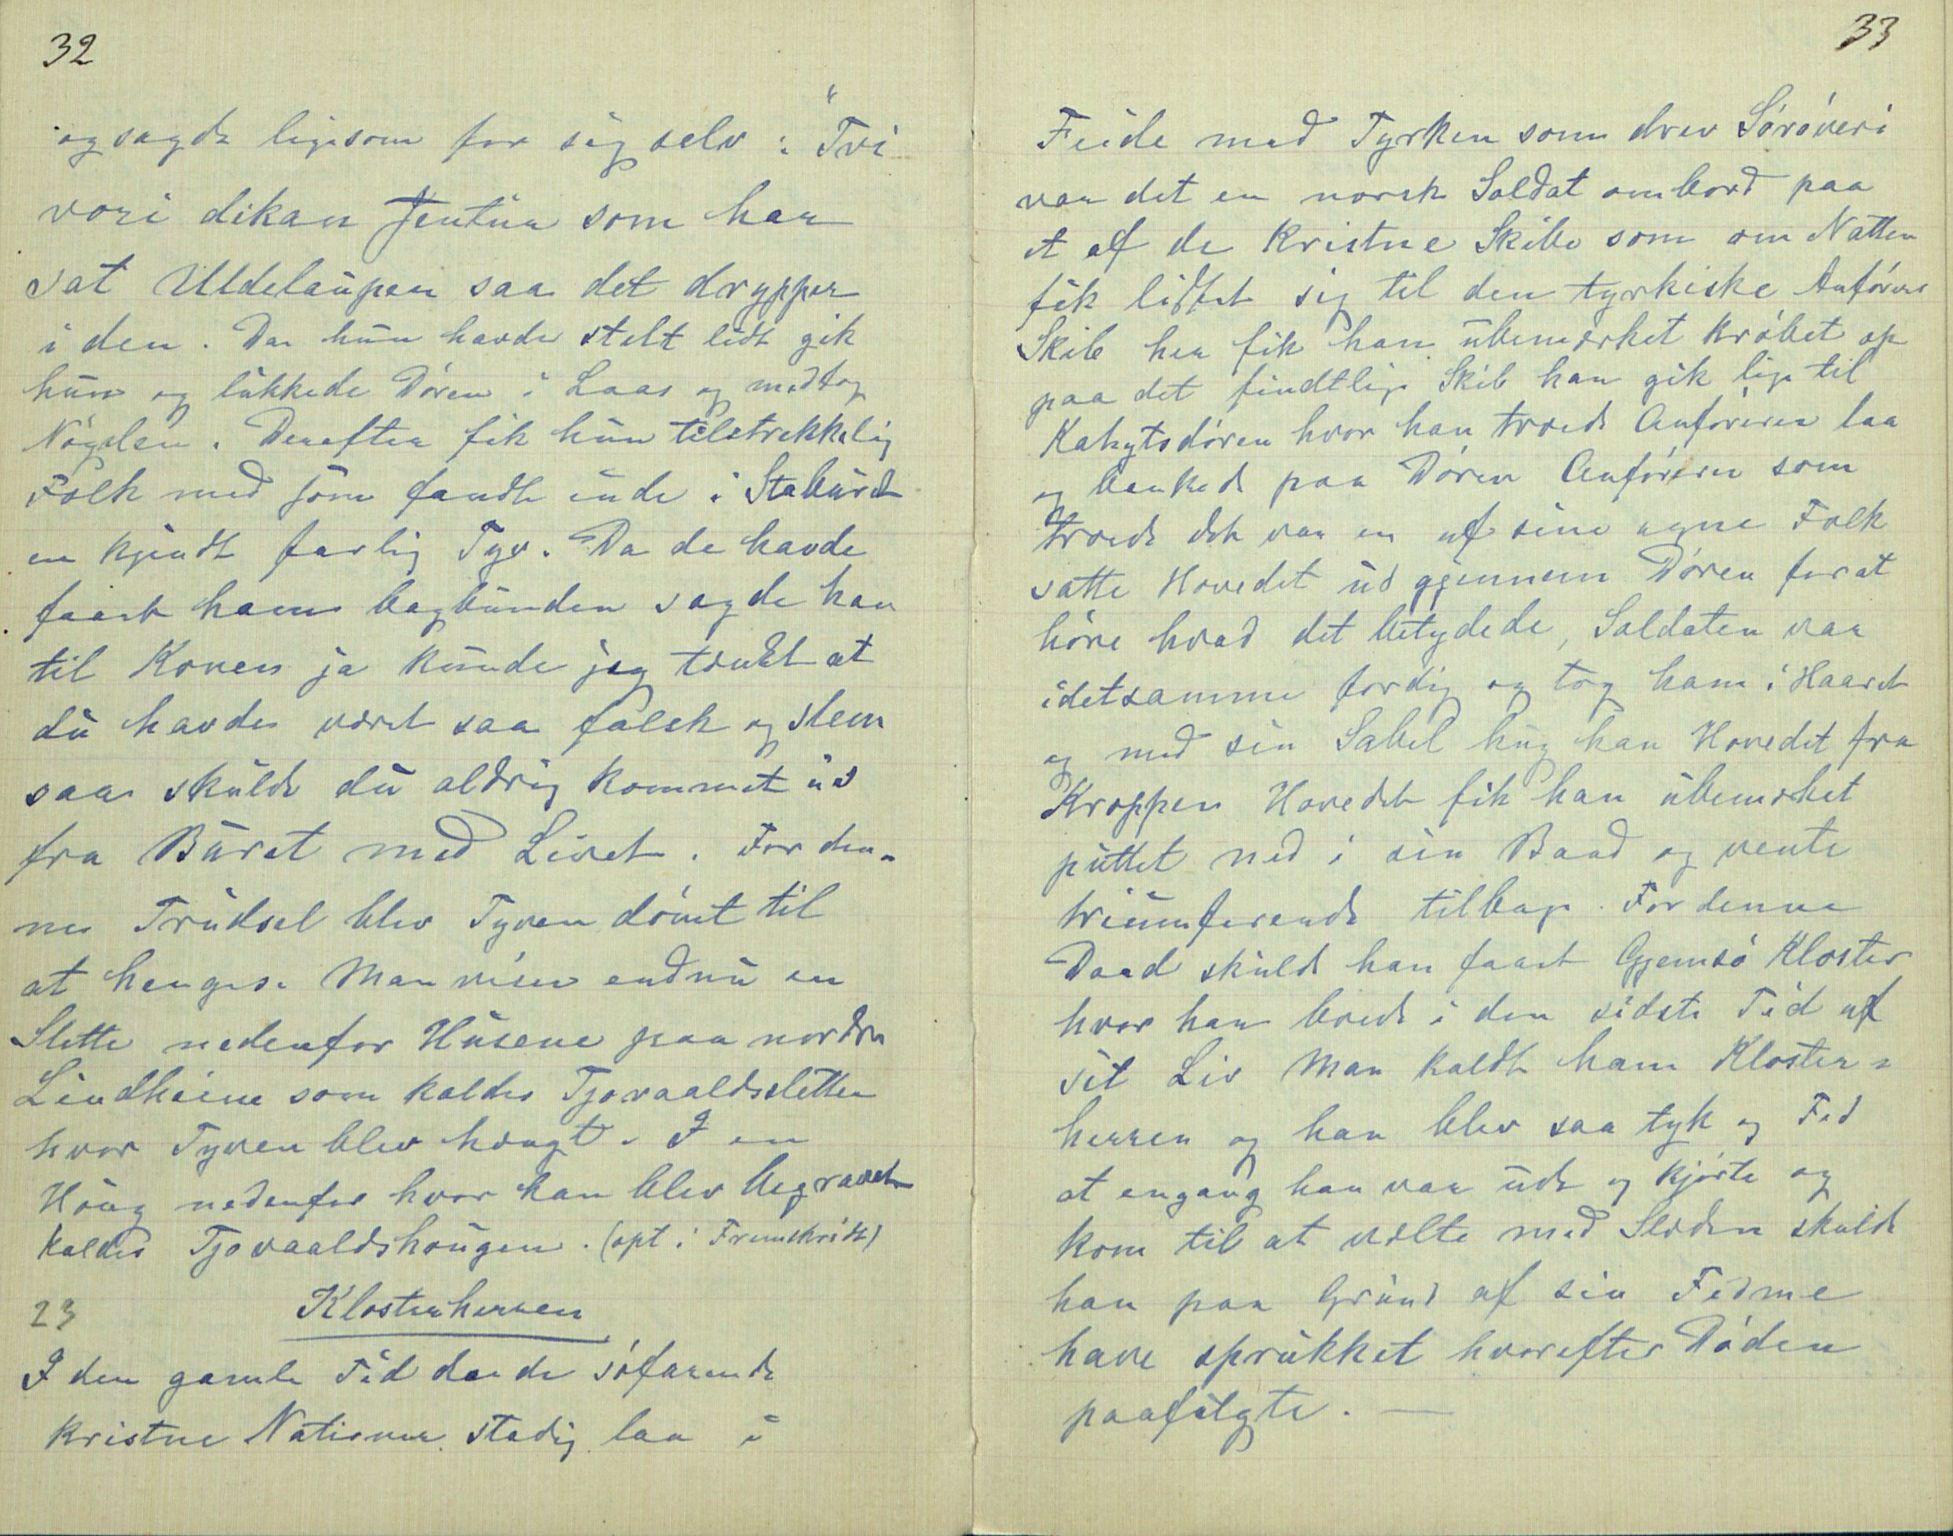 32
og sagde ligesom for sig selv : "Tvi
vori dikan Jentun som har
sat Uldelaupen saa det drypper
i den. Da hun havde stelt lidt gik
hun og lukkede Døren i Laas og medtog
Nøgelen. Derefter fik hun tilstrekkelig
Folk med som fandt inde i Staburet
en kjendt farlig Tyv. Da de havde
faaet ham bagbunden sagde han
til Konen ja kunde jeg tænkt at
du havde været saa falsk og slem
saa skulde du aldrig kommet ud
fra Buret med Livet. For den-
ne Trudsel blev Tyven dømt til
at henges. Man viser endnu en
Slette nedenfor Husene paa nordre
Lindheim som kaldes Tjovaaldsletten
hvor Tyven blev hængt. I en
Houg nedenfor hvor han blev begravet
kaldes Tjovaaldshougen. (opt i Fremskridt)
23 Klosterherren
I den gamle Tid da de søfarende
kristne Nationer stadig laa i
33
Feide med Tyrken som drev Sørøveri
var det en norsk Soldat ombord paa
et af de kristne Skibe som om Natten
fik listet sig til den tyrkiske Anførers
Skib her fik han ubemærket krøbet op
paa det findtlige Skib han gik lige til
Kahytsdøren hvor han troede Anføreren laa
og bankede paa Døren Anføreren som
troede det var en af sine egne Folk
satte Hovedet ud gjennem Døren for at
høre hvad det betydede, Soldaten var
idetsamme færdig og tog ham i Haaret
og med sin Sabel hug han Hovedet fra
Kroppen Hovedet fik han ubemerket
puttet ned i sin Baad og vente
triumferende tilbage. For denne
Daad skulde han faaet Gjemsø Kloster
hvor han boede i den sidste Tid af
sit Liv Man kaldte ham Kloster=
herren og han blev saa tyk og Fed
at engang han var ude og kjørte og
kom til at vælte med Slæden skulde
han paa Grund af sin Fedme
have sprukket hvorefter Døden
paafulgte. —